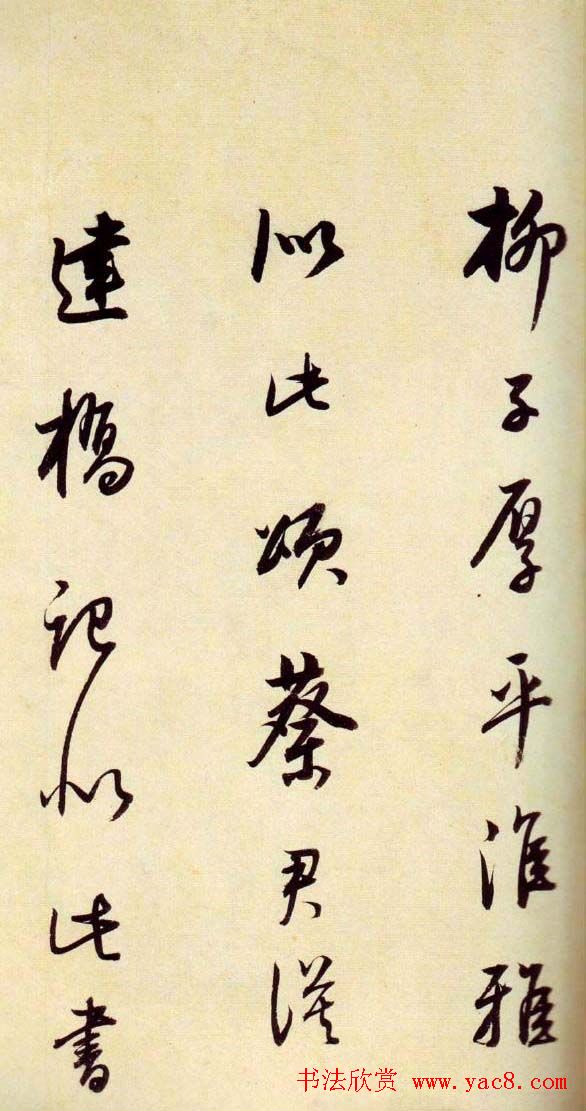 柳子厚平淮雅
似此頌蔡君謨
建橋記似此書
书法欣赏 www.yac8.com